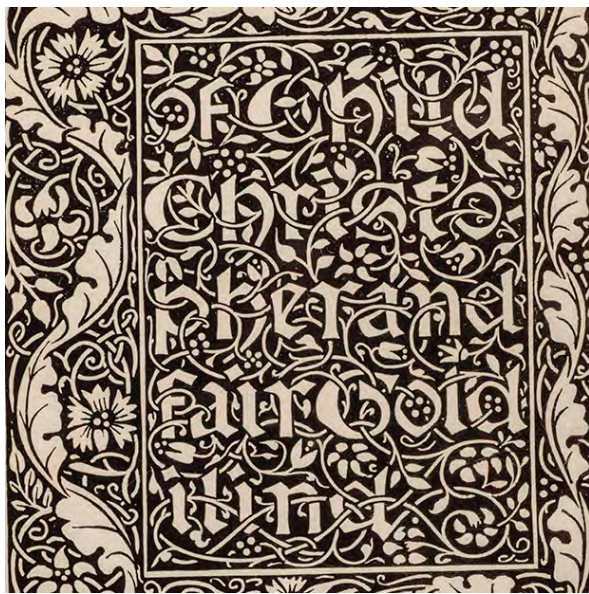 Of Child
Christo-
pher and
fair Gold
ilind